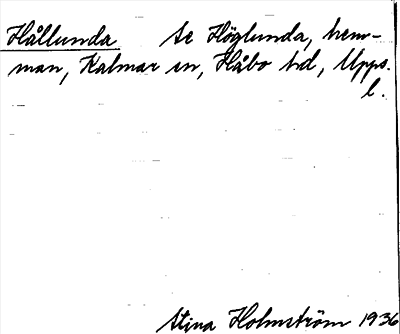 Hållunda se Höglunda, hem-
man, Kalmar sn, Håbo hd, Upps.
l.
Stina Holmström 1936